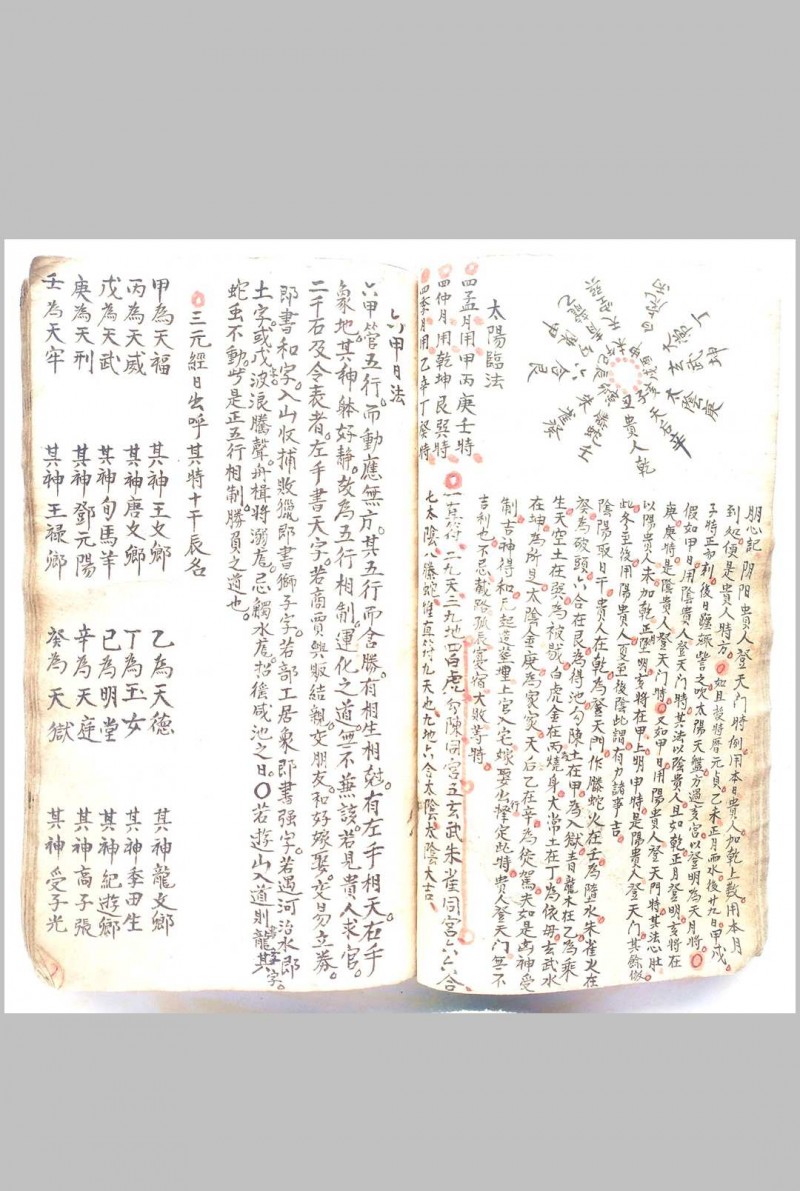 朋心記 陰陽貴人登天門時例用本日貴人加乾上數用本月
到処便是貴人時方。如且從將曆元貞乙未正月雨水後廿九日甲戌
子時正初刻後日躔娵訾之次太陽天盤方過亥宮以登明為天月將。
假如甲日用陰貴人登天門時其法以陰貴人丑加乾正月登明亥將在
庚庚時是陰貴人登天門時。又如甲日用陽貴人登天門時其法
以陽貴人未加乾正月登明亥將在甲上明甲時是陽貴人登天門其餘倣
此冬至後用陽貴人夏至後陰此謂有力諸事吉
陰陽取日干貴人在乾為登天門作螣蛇火在壬為墮水朱雀火在
癸為破頭六合在艮為得池勾陳土在甲為入獄青龍木在乙為乘
生天空土在巽為被剋白虎金在丙燒身大常土在丁為依母玄武水
在坤為所見太陰金庚為天后乙在辛為從駕夫如是凶神受
制吉神得和凡起造塟埋上官入宅嫁娶出行擇定此時貴人登天門無不
吉利也不忌截路孤辰寡宿大敗等時
一直符 二九天 三九地 四白虎 勾陳同宮 五玄武 朱雀同宮 六六合
七太陰 八螣蛇 惟直符九天也九地六合太陰太陰大吉
太陽臨法
四孟月用甲丙庚壬時
四仲月用乾坤艮巽時
四季月用乙辛丁癸時
六甲日法
六甲管五行而動應無方。其五行而含勝有相生相尅有左手相天右手
象地。其神躰好靜故為五行相制。運化之道無不兼該。若見貴人求官。
二千石及令表者。左手書天字。若商賈興販結親交朋友。和好嫁娶。交易立券。
即書和字。入山收捕畋獵即書獅子字。若部工居象即書强字。若遇河治水即書
土字。或戊波浪騰聲。舟楫將溺危。忌觸水危。招搖咸池之日。〇若遊山入道則龍其字。
蛇虫不動。此是正五行相制。勝負之道也。
三元經日出呼其時十干辰名
甲為天福 其神王文鄉 乙為天德 其神龍文鄉
丙為天威 其神唐文鄉 丁為玉女 其神李田生
戊為天武 其神旬馬羊 己為明堂 其神紀遊鄉
庚為天刑 其神鄧元陽 辛為天庭 其神高子張
壬為天牢 其神王禄鄉 癸為天獄 其神受子光